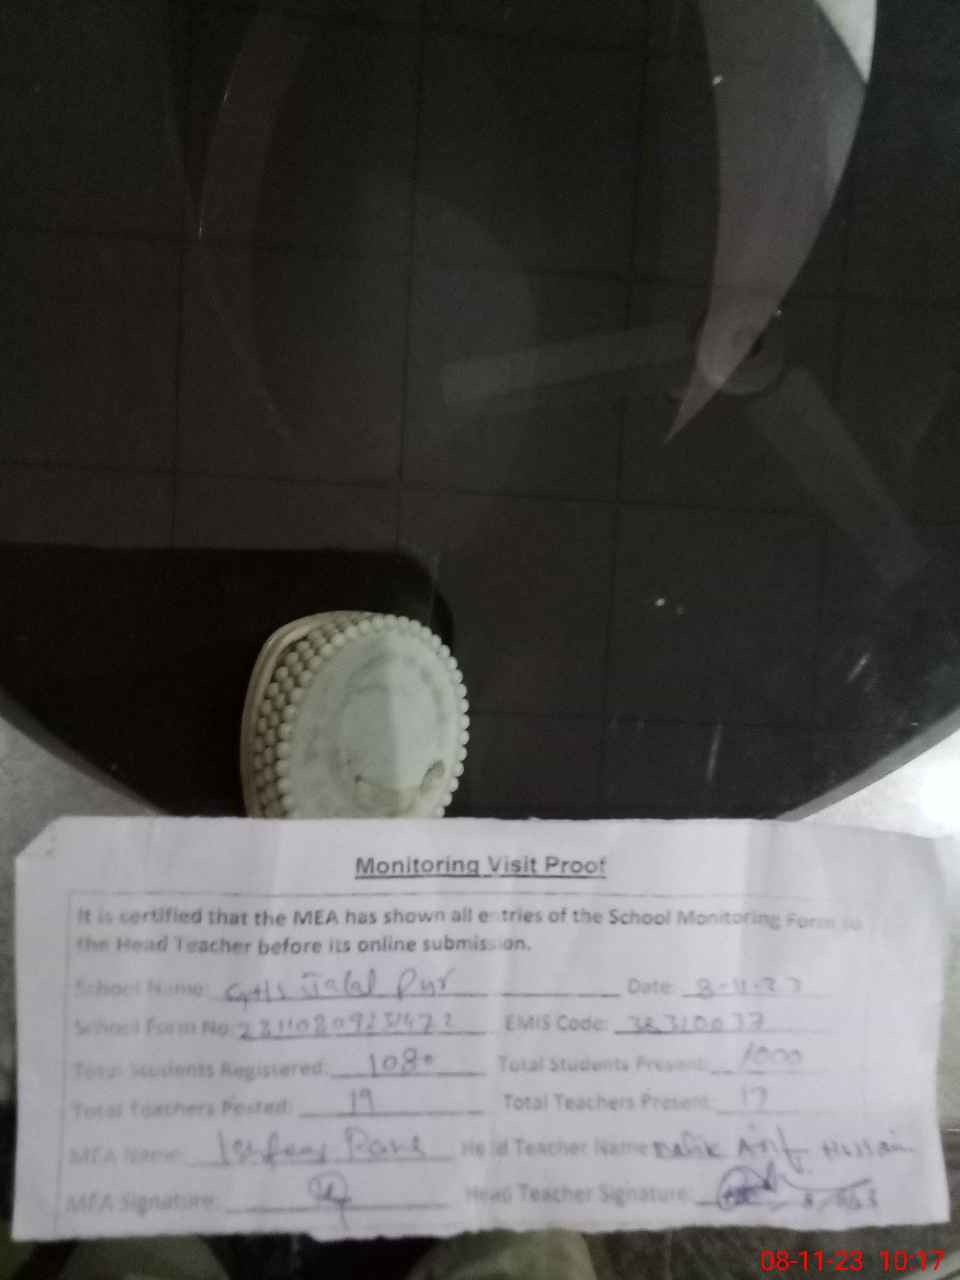 Monitoring Visit Proof
It is certified that the MEA has shown all entries of the School Monitoring Form to
the Head Teacher before its online submission.
School Name: GHS Jalal Pur Date: 8-11-23
School Form No: EMIS Code:
Total Students Registered: 1080 Total Students Present: 1000
Total Teachers Posted: 19 Total Teachers Present: 17
MEA Name: Head Teacher Name Malik Arif Hussain
MEA Signature: Head Teacher Signature:
08-11-23 10:17